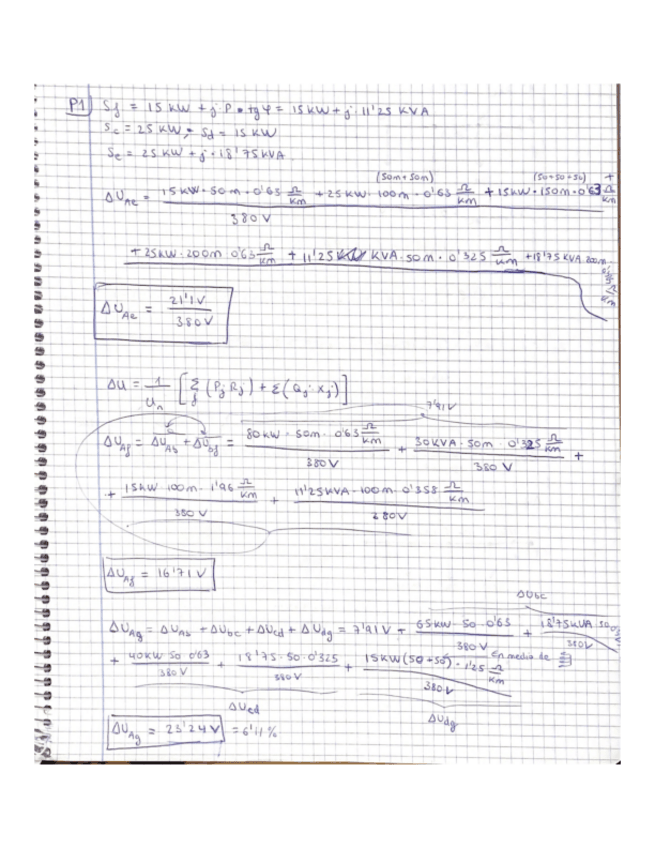 P1 Sf = 15 kW + j·P·tgφ = 15kW + j·11'25 KVA
Sc = 25 KW, Sd = 15 KW
Se = 25 KW + j·18'75KVA
(50m+50m) (50+50+50)
ΔU_Ae = 15kW·50m·0'63 Ω/km + 25KW·100m·0'63 Ω/km + 15KW·150m·0'63 Ω/km +
380V
+ 25KW·200m·0'63 Ω/km + 11'25 KVA·50m·0'325 Ω/km + 18'75 KVA·200m
ΔU_Ae = 21'1V / 380V
ΔU = 1/Un [Σj (Pj Rj) + Σ(Qj·Xj)]
7'91V
ΔU_Af = ΔU_Ab + ΔU_bf = 80KW·50m·0'63 Ω/km / 380V + 30KVA·50m·0'325 Ω/km / 380V +
+ 15KW·100m·1'96 Ω/km / 380V + 11'25KVA·100m·0'358 Ω/km / 380V
ΔU_Af = 16'71V
ΔUbc
ΔU_Ag = ΔU_Ab + ΔU_bc + ΔU_cd + ΔU_dg = 7'91V + 65KW·50·0'63 / 380V + 18'75KVA·50 / 380V
+ 40KW·50·0'63 / 380V + 18'75·50·0'325 / 380V + 15KW(50+50)·1'25 Ω/km / 380V En medio de
ΔUcd ΔUdg
ΔU_Ag = 23'24V = 6'11%